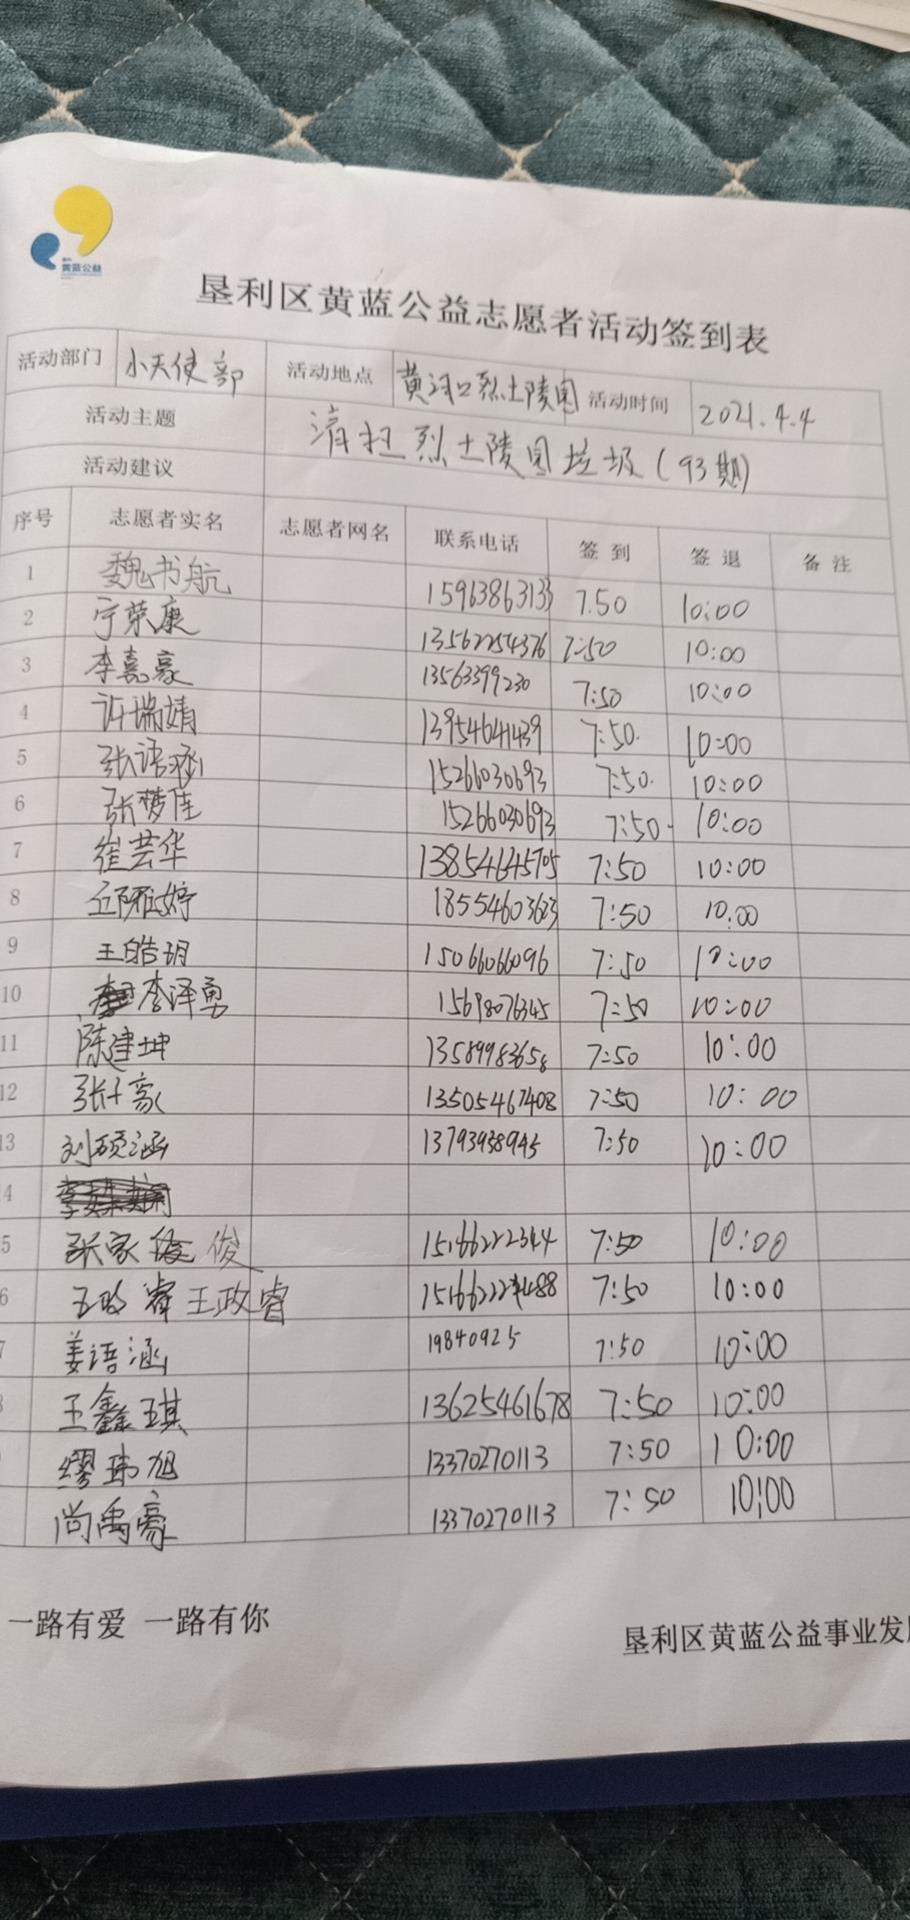 黄蓝公益
垦利区黄蓝公益志愿者活动签到表
活动部门 小天使部 活动地点 黄河口烈士陵园 活动时间 2021.4.4
活动主题 清扫烈士陵园垃圾(93期)
活动建议
序号 志愿者实名 志愿者网名 联系电话 签到 签退 备注
1 魏书航 15963863133 7.50 10:00
2 宁荣康 13562254376 7:50 10:00
3 李嘉豪 13563399230 7:50 10:00
4 许瑞婧 13954641439 7:50. 10:00
5 张语涵 15266030693 7:50. 10:00
6 张梦佳 15266030693 7:50. 10:00
7 崔芸华 13854645705 7:50 10:00
8 丘雅婷 18554603623 7:50 10.00
9 王皓玥 15066066096 7:50 10:00
10 李泽勇 15698076345 7:50 10:00
11 陈建坤 13589983658 7:50 10:00
12 张子豪 13505467408 7:50 10:00
13 刘硕涵 13793938945 7:50 10:00
4
5 张家俊 15166222344 7:50 10:00
6 王政睿 7:50 10:00
7 姜语涵 19840925 7:50 10:00
8 王鑫琪 13625461678 7:50 10:00
缪玮旭 13370270113 7:50 10:00
尚禹豪 13370270113 7:50 10:00
一路有爱 一路有你
垦利区黄蓝公益事业发展